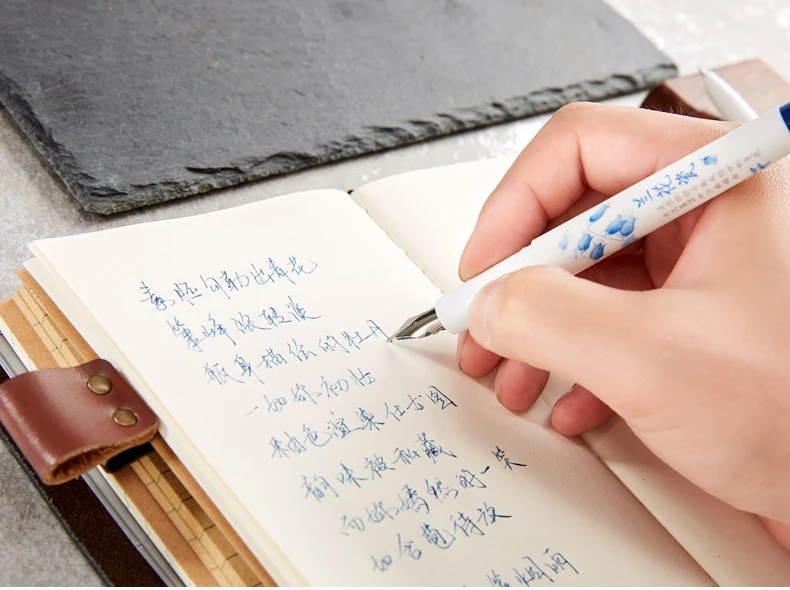 素胚勾勒出青花
筆峰浓转淡
瓶身描绘的牡丹
一如妳初妆
釉色渲染仕女图
韵味被私藏
而妳嫣然的一笑
如含苞待放
等烟雨
兰花瓷